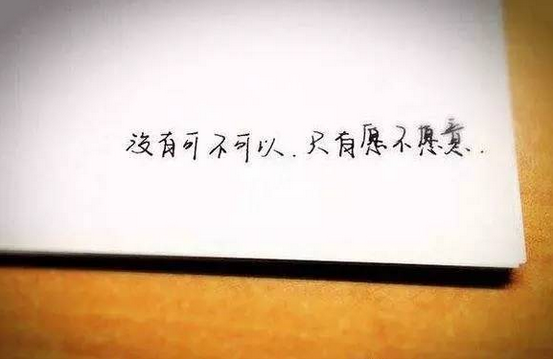 没有可不可以.只有愿不愿意.